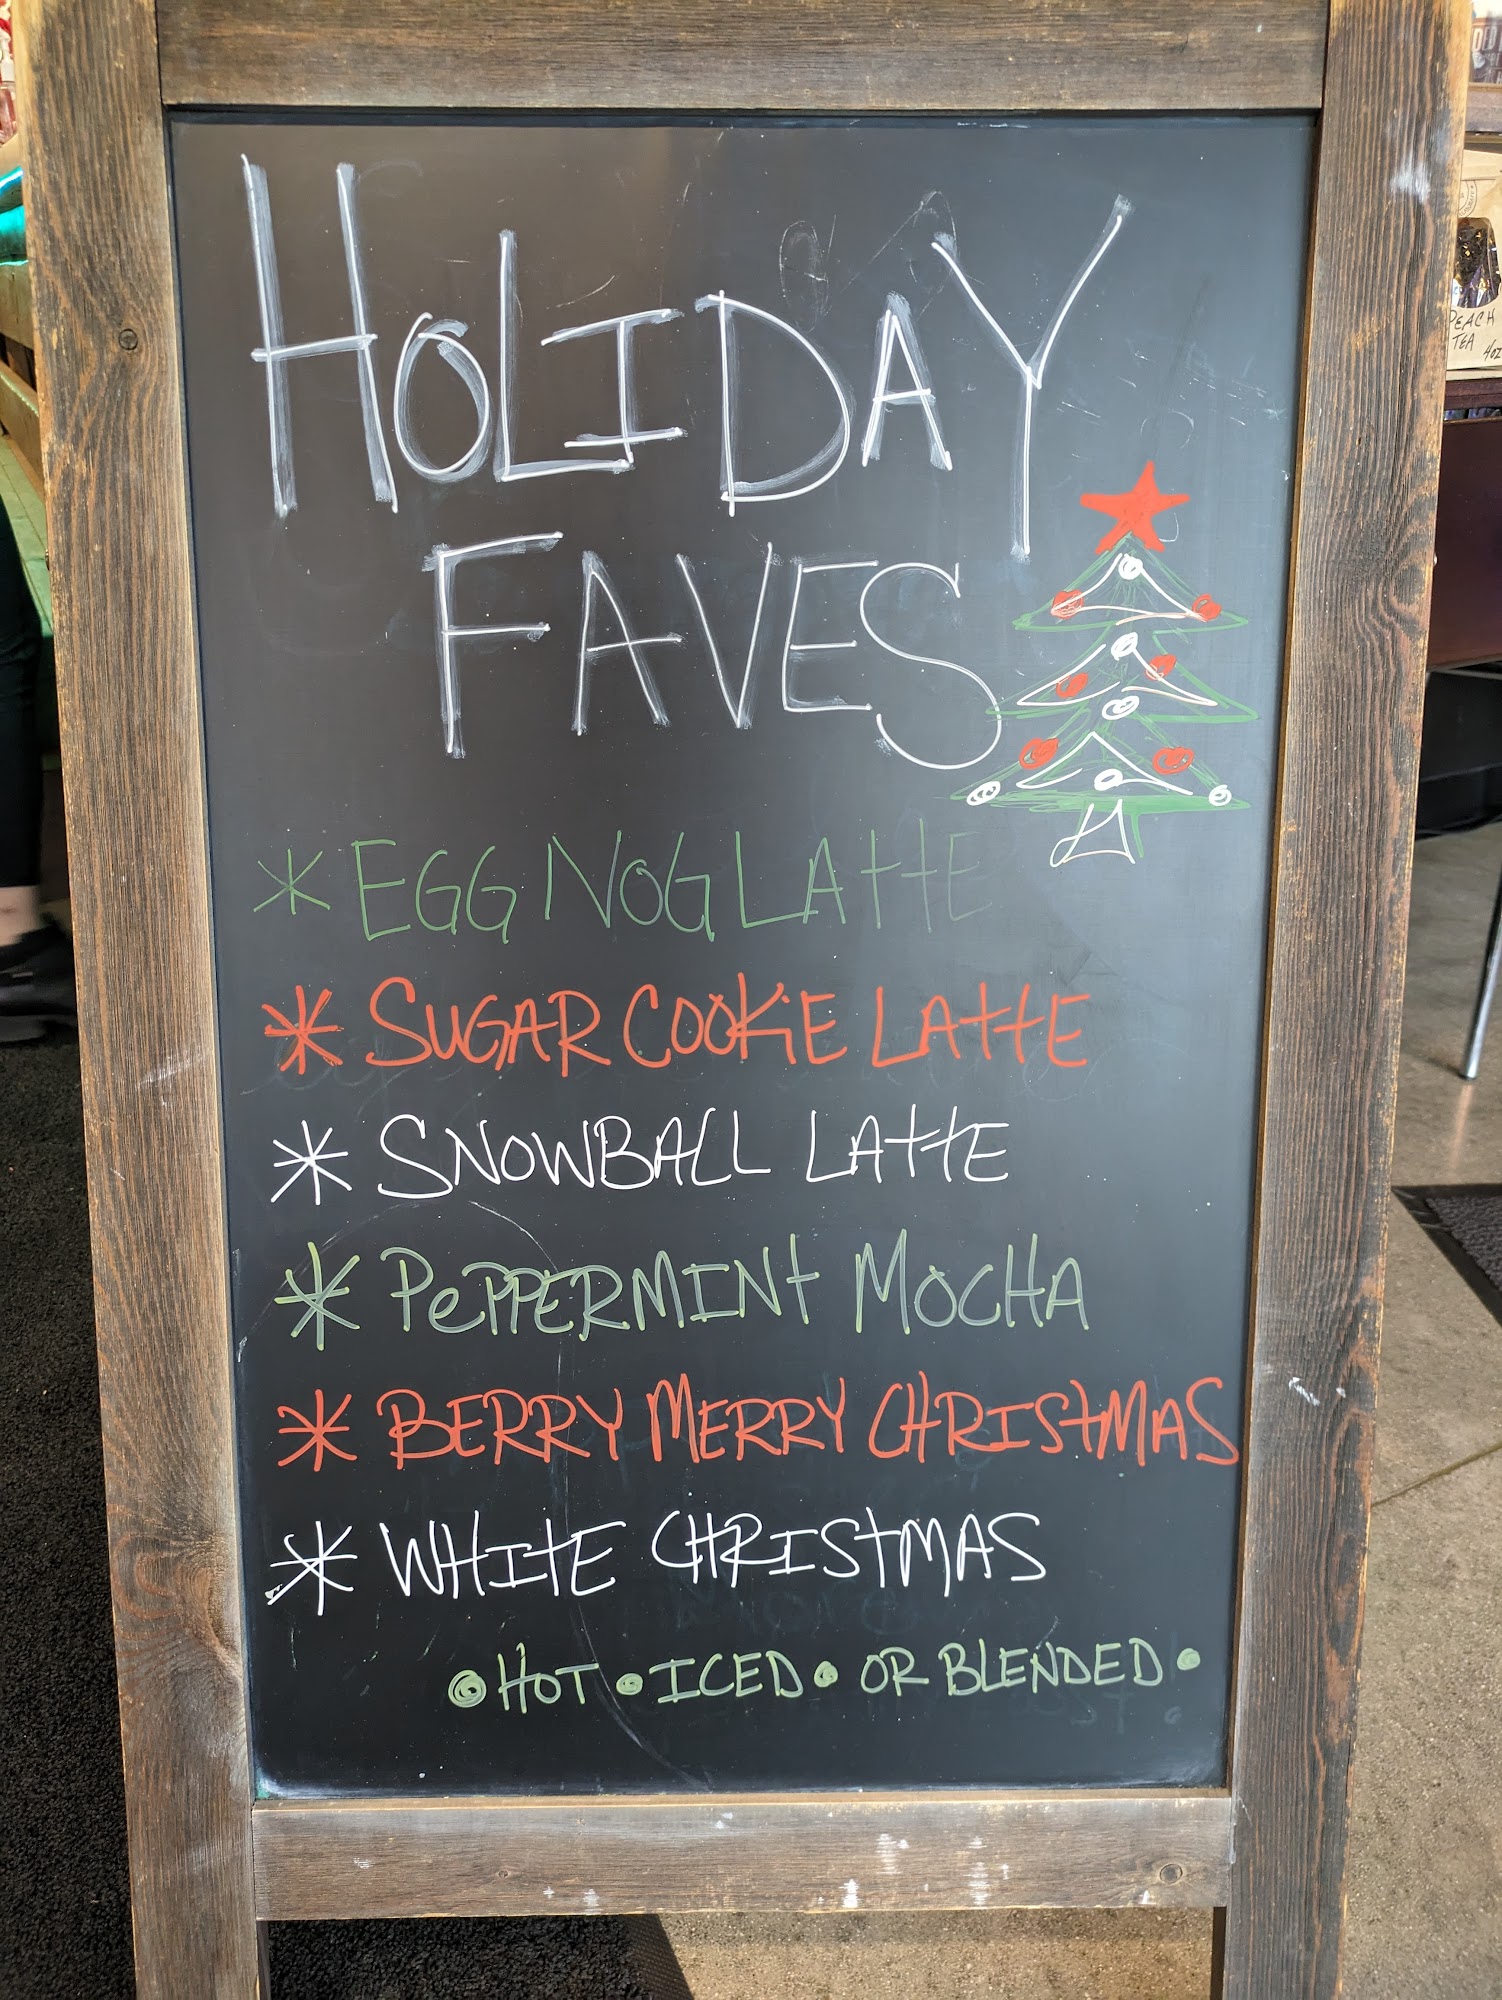 HOLIDAY
FAVES
* EGG NOG LATTE
* SUGAR COOKIE LATTE
* SNOWBALL LATTE
* PEPPERMINT MOCHA
* BERRY MERRY CHRISTMAS
* WHITE CHRISTMAS
• HOT • ICED • OR BLENDED •
PEACH
TEA
4oz